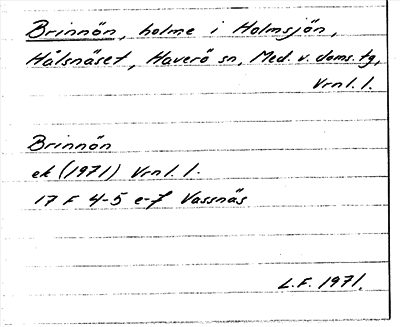 Brinnön, holme i Holmsjön,
Hålsnäset, Haverö sn, Med. v. doms. tg,
Vrnl. l.
Brinnön
ek (1971) Vrnl. l.
17 F 4-5 e-f Vassnäs
L.F. 1971.